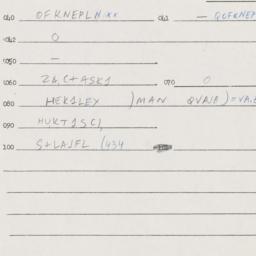 040 OFKNEPLN.XX 041 — QOFKNEP
042 O
050 —
060 ZA,C+ASK1 070 O
080 HEK1LEY )MAN QVAJA)=VA.
090 HUKT1SCI,
100 S+LAJFL (434